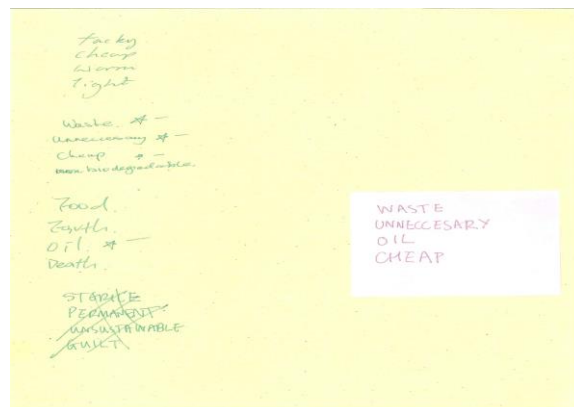 tacky
cheap
warm
light
Waste. * –
unneccessary * –
Cheap * –
non biodegradable.
Food.
Earth.
oil. * –
Death.
STORAGE
PERMANENT.
UNSUSTAINABLE
GUILT
WASTE
UNNECCESARY
OIL
CHEAP